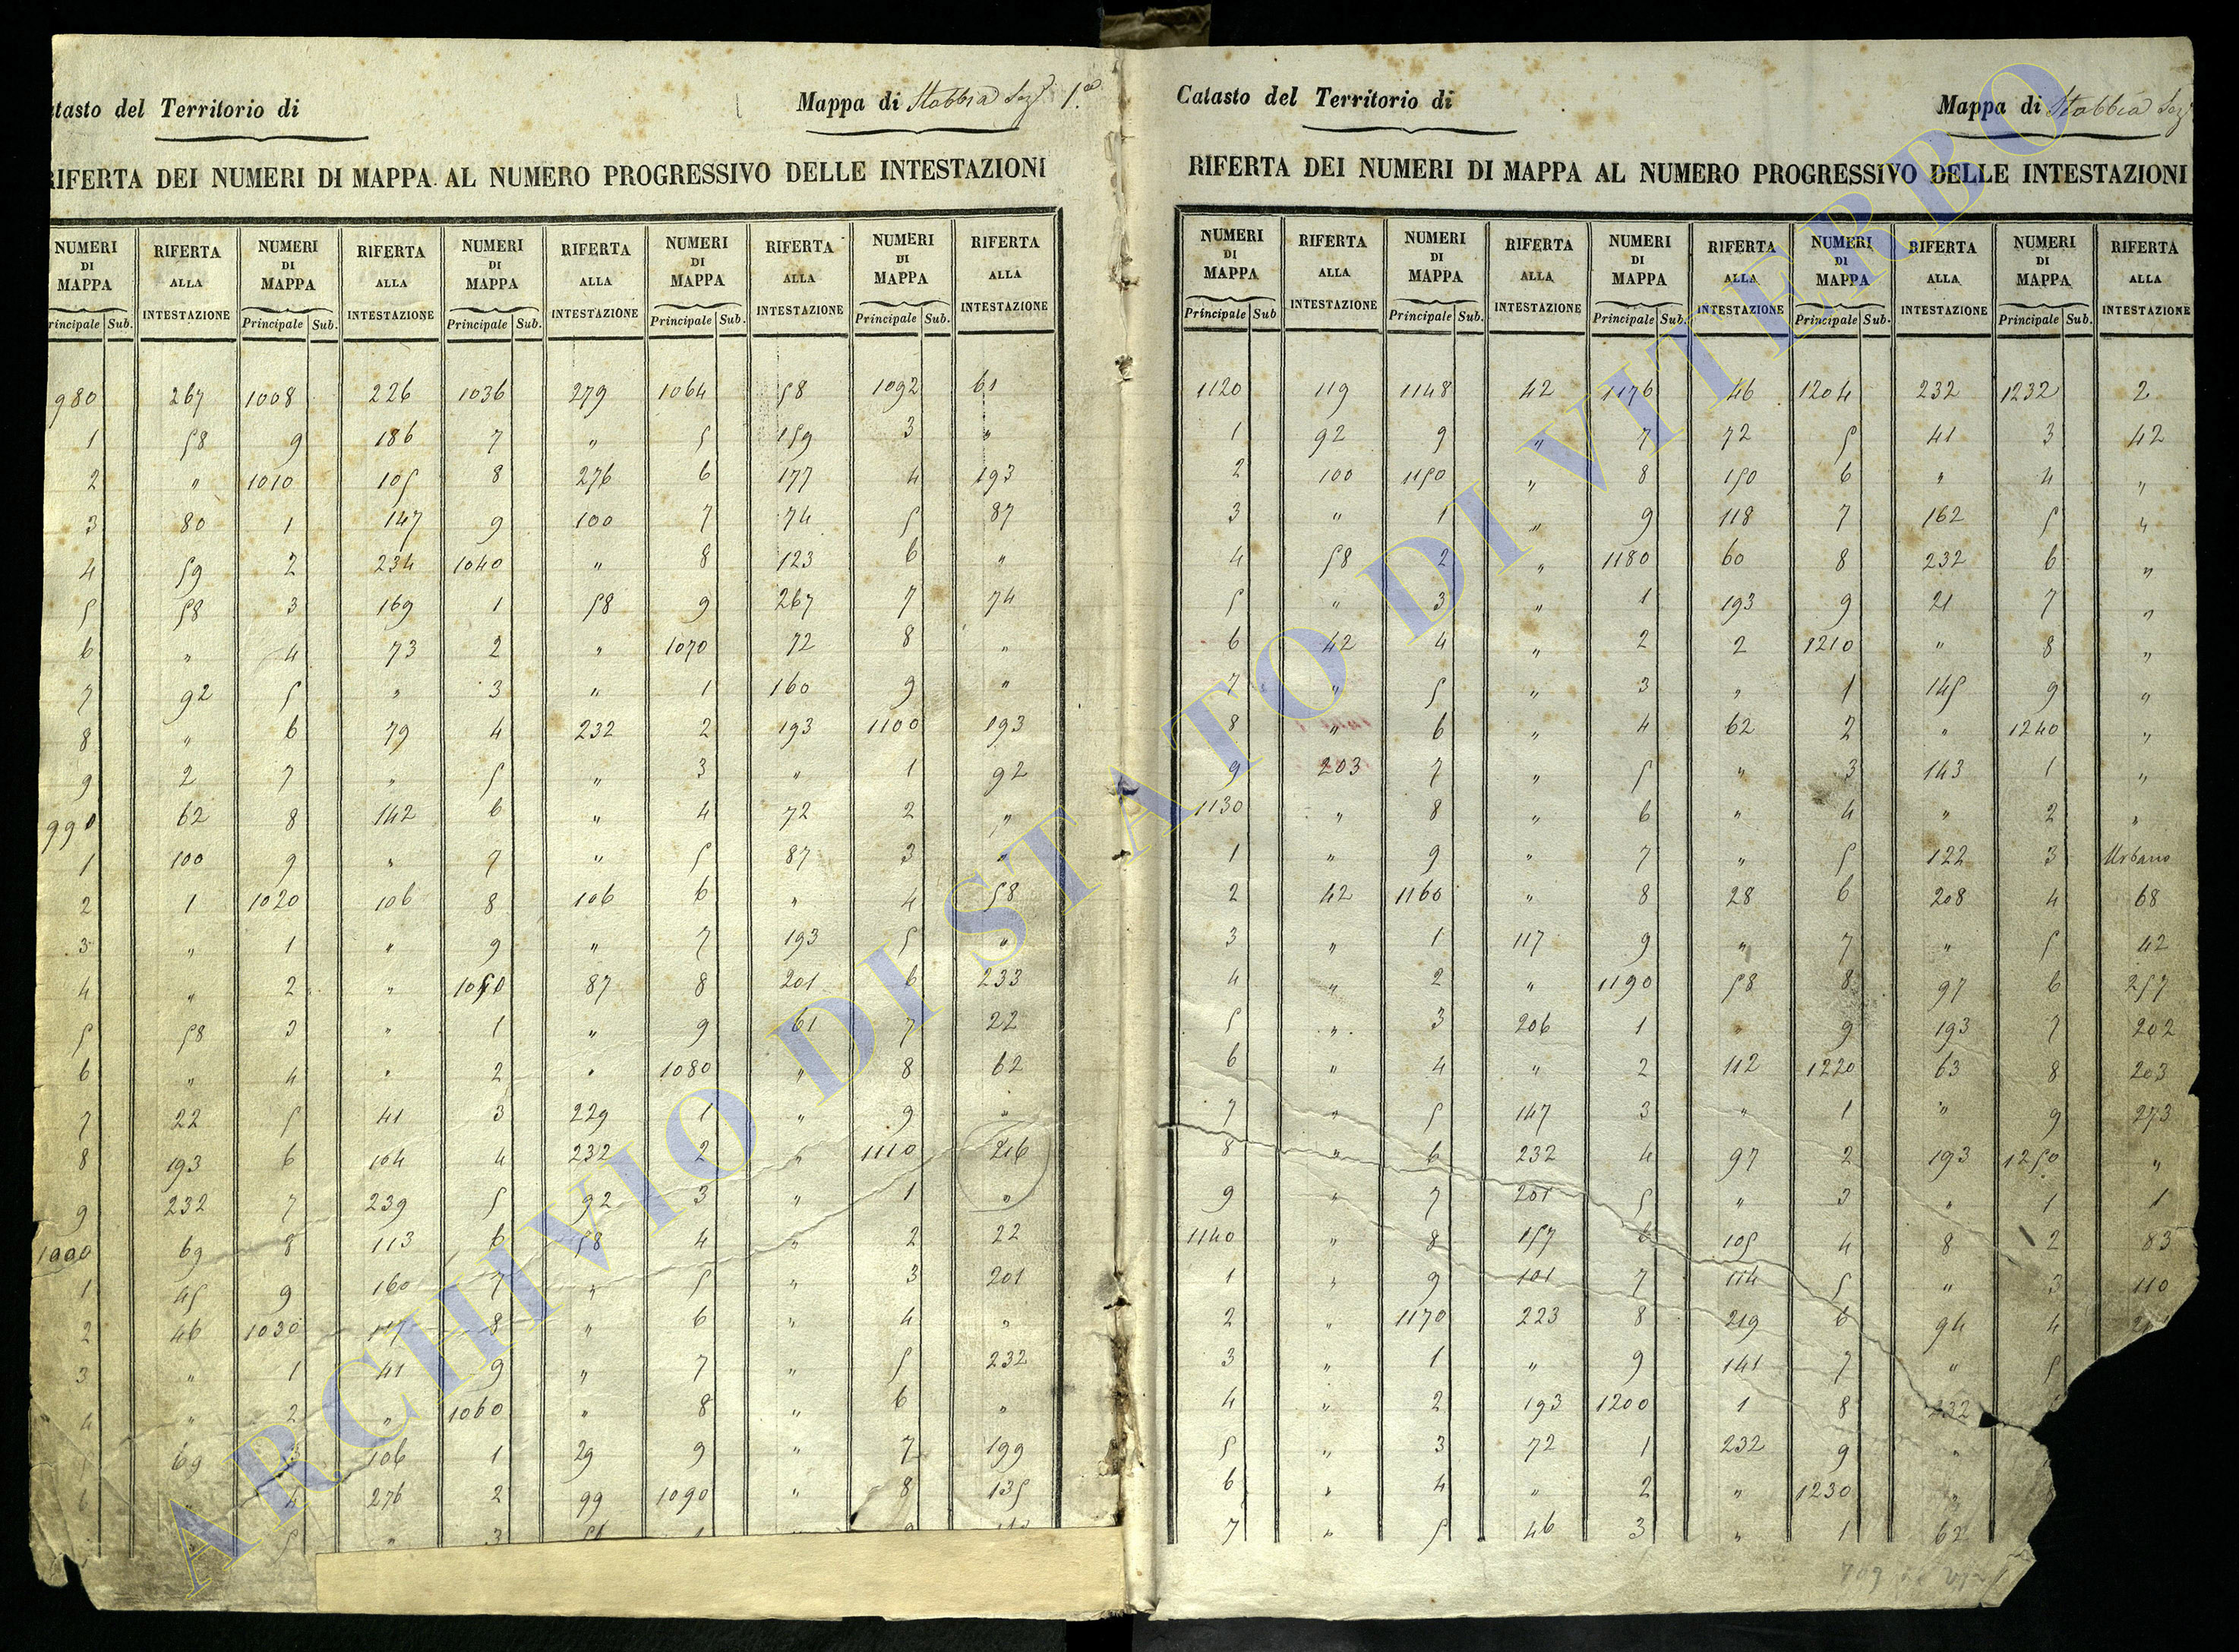 Catasto del Territorio di
Mappa di Stabbia Sez.e 1.a
RIFERTA DEI NUMERI DI MAPPA AL NUMERO PROGRESSIVO DELLE INTESTAZIONI
NUMERI DI MAPPA RIFERTA ALLA INTESTAZIONE NUMERI DI MAPPA RIFERTA ALLA INTESTAZIONE NUMERI DI MAPPA RIFERTA ALLA INTESTAZIONE NUMERI DI MAPPA RIFERTA ALLA INTESTAZIONE NUMERI DI MAPPA RIFERTA ALLA INTESTAZIONE
Principale Sub. Principale Sub. Principale Sub. Principale Sub. Principale Sub.
980 267 1008 226 1036 279 1064 58 1092 61
1 58 9 186 7 " 5 159 3 "
2 " 1010 105 8 276 6 177 4 193
3 80 1 147 9 100 7 74 5 87
4 59 2 234 1040 " 8 123 6 "
5 58 3 169 1 58 9 267 7 74
6 " 4 73 2 " 1070 72 8 "
7 92 5 " 3 " 1 160 9 "
8 " 6 79 4 232 2 193 1100 193
9 2 7 " 5 " 3 " 1 92
990 62 8 142 6 " 4 72 2 "
1 100 9 " 7 " 5 87 3 "
2 1 1020 106 8 106 6 " 4 58
3 " 1 " 9 " 7 193 5 "
4 " 2 " 1050 87 8 201 6 233
5 58 3 " 1 " 9 61 7 22
6 " 4 " 2 " 1080 " 8 62
7 22 5 41 3 229 1 " 9 "
8 193 6 104 4 232 2 " 1110 216
9 232 7 239 5 92 3 " 1 "
1000 69 8 113 6 58 4 " 2 22
1 45 9 160 7 " 5 " 3 201
2 46 1030 117 8 " 6 " 4 "
3 " 1 41 9 " 7 " 5 232
4 " 2 " 1060 " 8 " 6 "
69 3 106 1 29 9 " 7 199
6 " 4 276 2 99 1090 " 8 135
5 " 3
Catasto del Territorio di
Mappa di Stabbia Sez
RIFERTA DEI NUMERI DI MAPPA AL NUMERO PROGRESSIVO DELLE INTESTAZIONI
NUMERI DI MAPPA RIFERTA ALLA INTESTAZIONE NUMERI DI MAPPA RIFERTA ALLA INTESTAZIONE NUMERI DI MAPPA RIFERTA ALLA INTESTAZIONE NUMERI DI MAPPA RIFERTA ALLA INTESTAZIONE NUMERI DI MAPPA RIFERTA ALLA INTESTAZIONE
Principale Sub Principale Sub. Principale Sub. Principale Sub. Principale Sub.
1120 119 1148 42 1176 46 1204 232 1232 2
1 92 9 " 7 72 5 41 3 42
2 100 1150 " 8 150 6 " 4 "
3 " 1 " 9 118 7 162 5 "
4 58 2 " 1180 60 8 232 6 "
5 " 3 " 1 193 9 21 7 "
6 42 4 " 2 2 1210 " 8 "
7 " 5 " 3 " 1 145 9 "
8 " 6 " 4 62 2 " 1240 "
9 203 7 " 5 " 3 143 1 "
1130 " 8 " 6 " 4 " 2 "
1 " 9 " 7 " 5 122 3 Urbano
2 42 1160 " 8 28 6 208 4 68
3 " 1 117 9 " 7 " 5 42
4 " 2 " 1190 58 8 97 6 257
5 " 3 206 1 " 9 193 7 202
6 " 4 " 2 112 1220 63 8 203
7 " 5 147 3 " 1 " 9 273
8 " 6 232 4 97 2 193 1250 "
9 " 7 201 5 " 3 " 1 1
1140 " 8 157 6 105 4 8 2 83
1 " 9 101 7 114 5 " 3 110
2 " 1170 223 8 219 6 94 4
3 " 1 " 9 141 7 " 5
4 " 2 193 1200 1 8 232
5 " 3 72 1 232 9 "
6 " 4 " 2 " 1230 "
7 " 5 46 3 " 1 62
ARCHIVIO DI STATO DI VITERBO